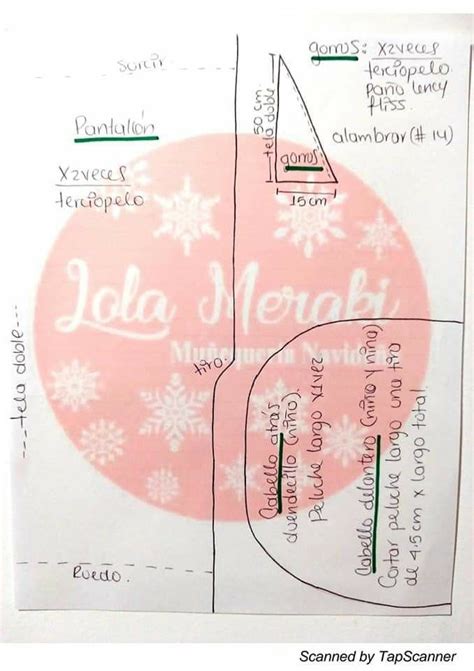 surcir.
Pantalón
x2veces
terciopelo
---tela doble---
tiro.
Ruedo.
gorros: x2veces
terciopelo
paño lency
fliss.
alambrar (# 14)
50 cm.
tela doble.
gorros
15 cm
Lola Merabi
Muñequería Navideña
Cabello atrás
duendecillo (niño).
Peluche largo x1vez
Cabello delantero (niño y niña)
Cortar peluche largo una tira
de 4.5 cm x largo total.
Scanned by TapScanner